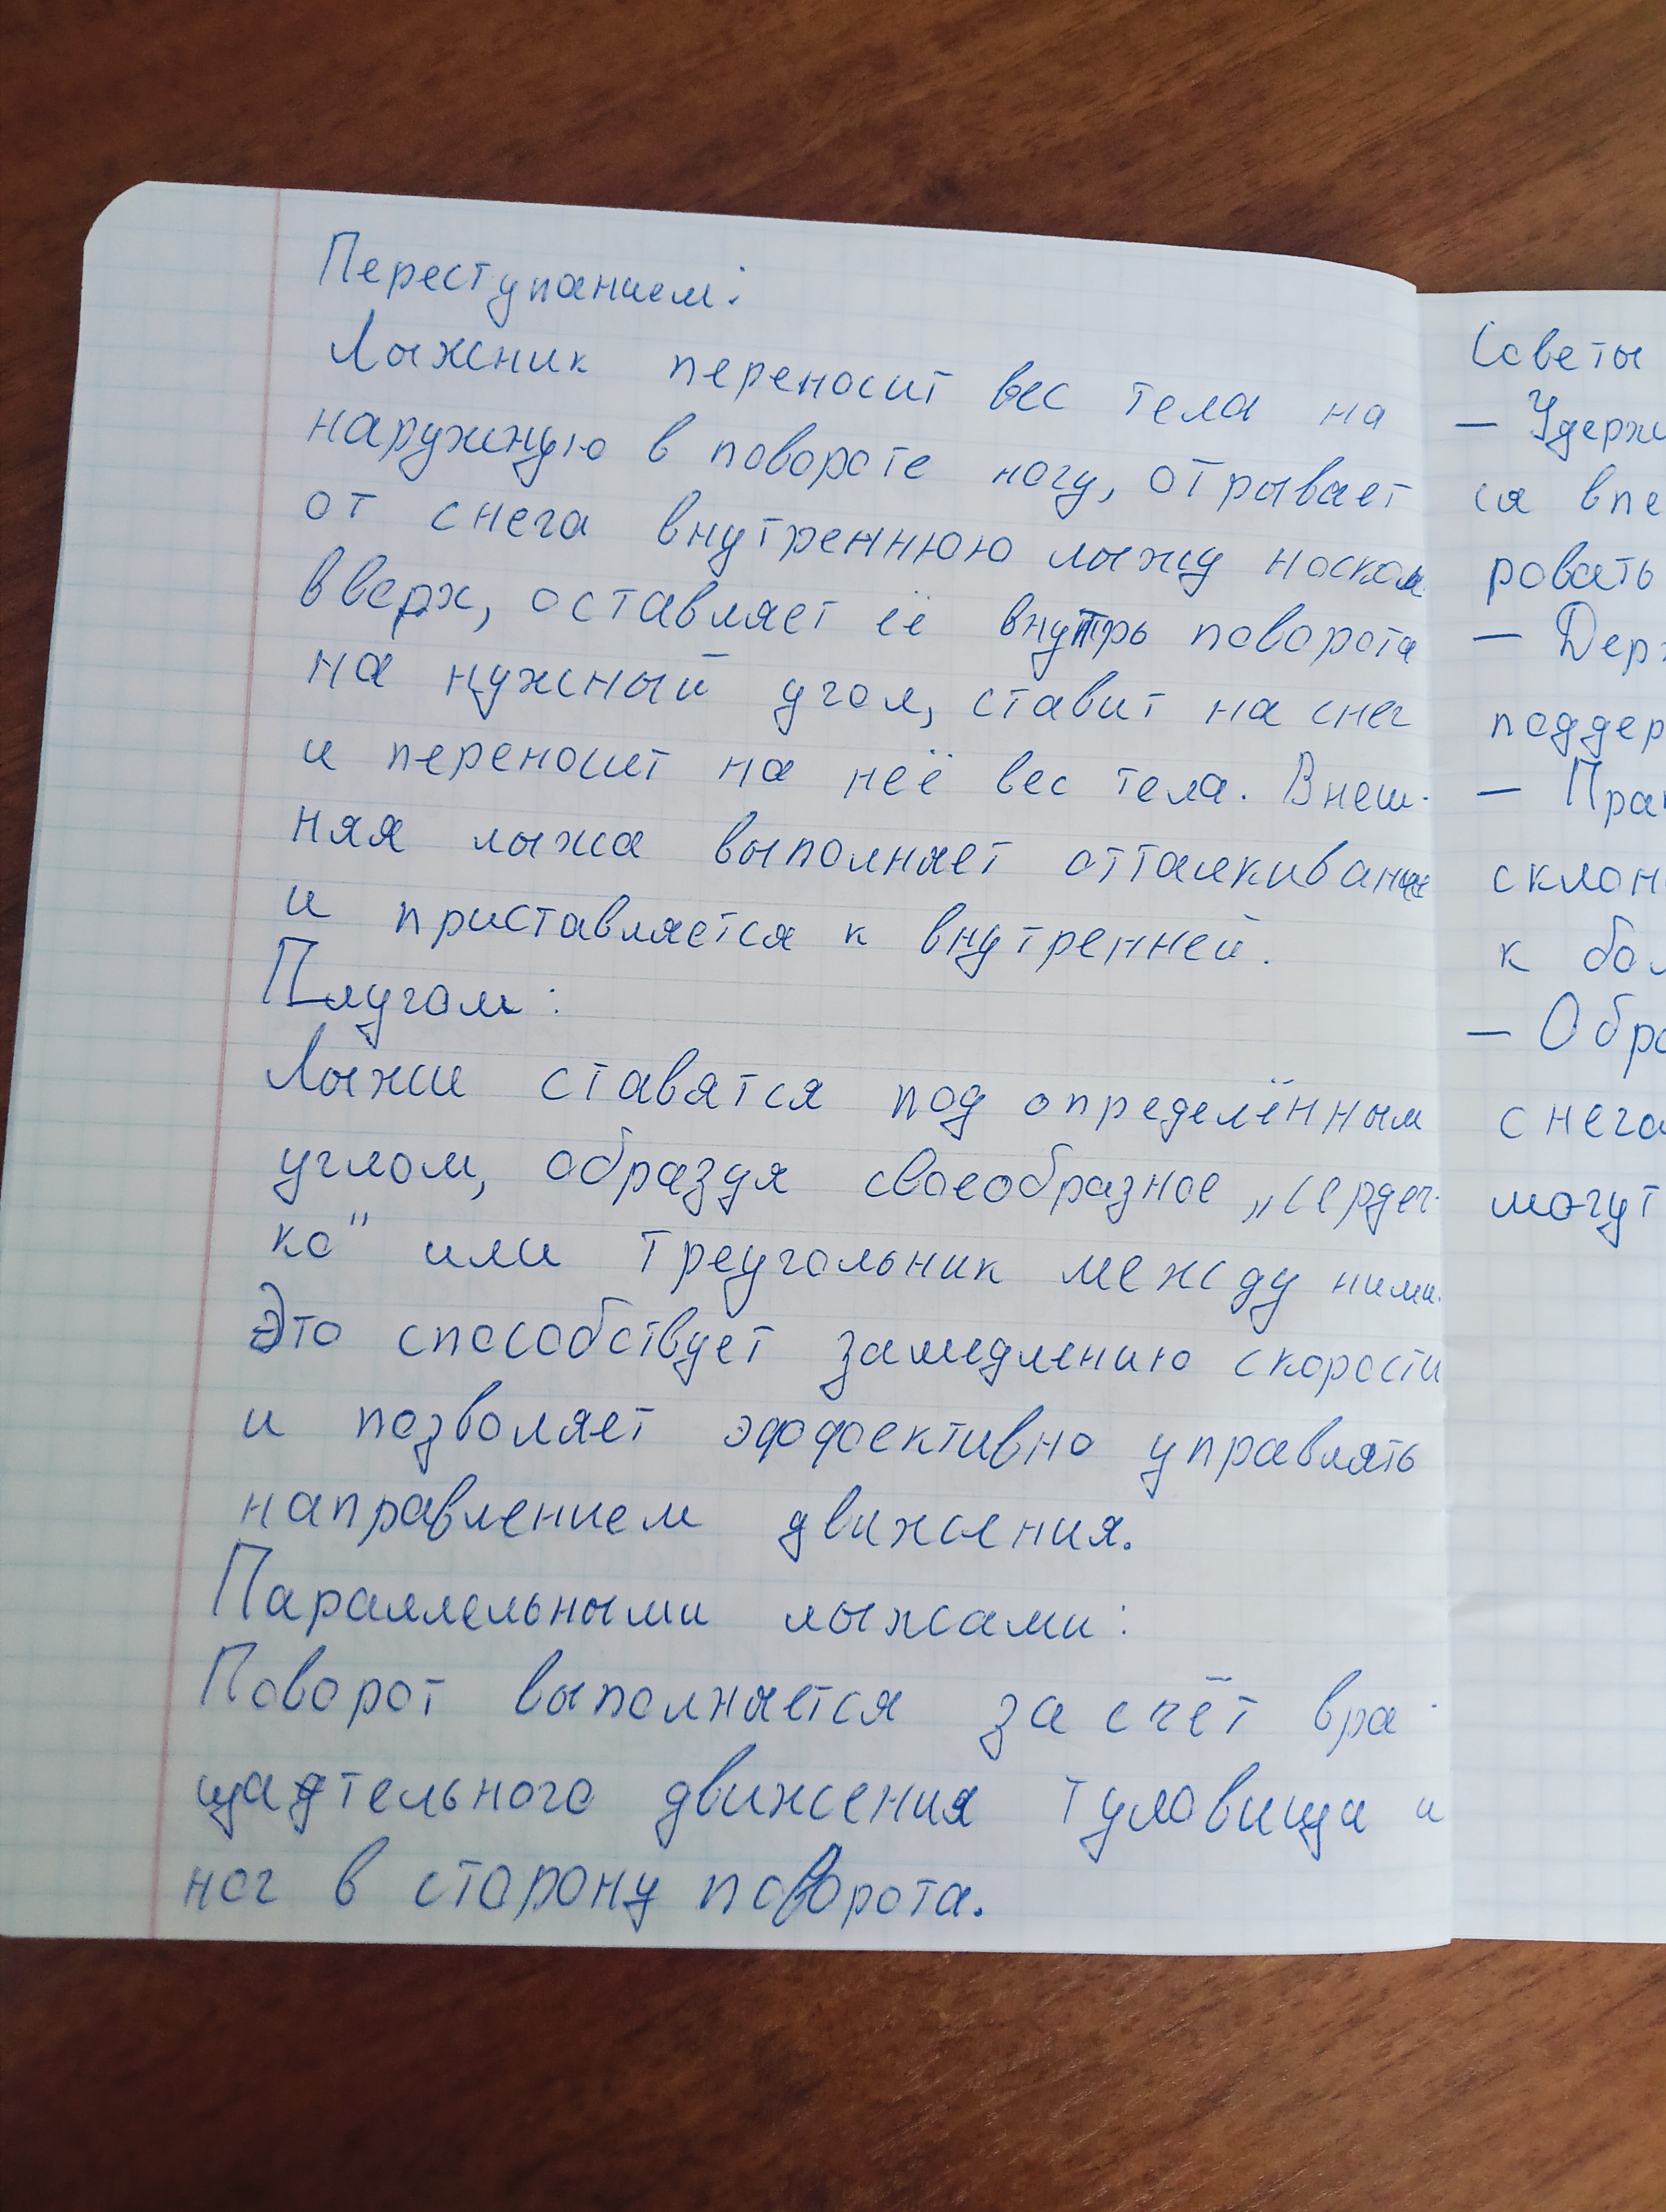 Переступанием:
Лыжник переносит вес тела на
наружную в повороте ногу, отрывает
от снега внутреннюю лыжу носком
вверх, оставляет её внутрь поворота
на нужный угол, ставит на снег
и переносит на неё вес тела. Внеш-
няя лыжа выполняет отталкивание
и приставляется к внутренней.
Плугом:
Лыжи ставятся под определённым
углом, образуя своеобразное „сердеч-
ко" или треугольник между ними.
Это способствует замедлению скорости
и позволяет эффективно управлять
направлением движения.
Параллельными лыжами:
Поворот выполняется за счёт вра-
щадтельного движения туловища и
ног в сторону поворота.
Советы
– Удержи
ся впе
ровать
– Держ
поддер
– Прак
склон
к бол
– Обра
снега
могут